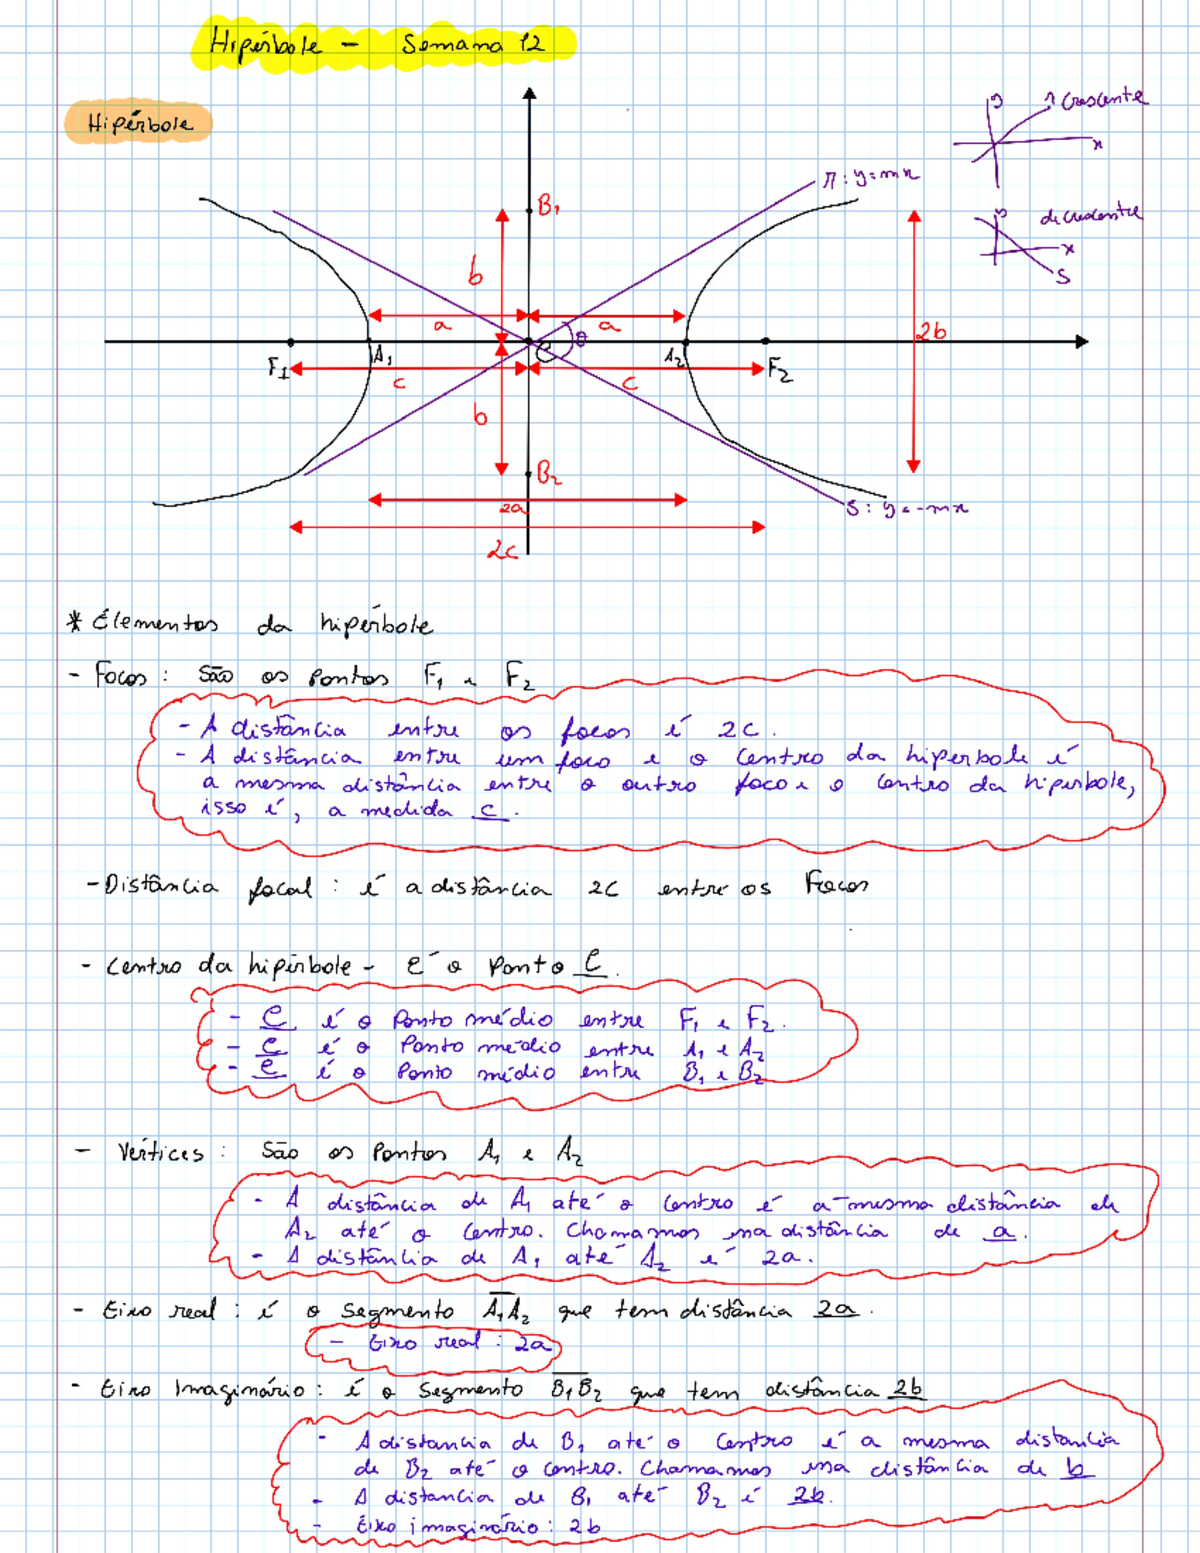 Hipérbole - Semana 12
Hipérbole
y
r crescente
x
y
decrescente
x
s
r: y=mx
B₁
b
a
a
θ
2b
F₁
A₁
C
A₂
F₂
c
c
b
B₂
2a
s: y=-mx
2c
* Elementos da hipérbole
- Focos: São os pontos F₁ e F₂
- A distância entre os focos é 2c.
- A distância entre um foco e o centro da hiperbole é
a mesma distância entre o outro foco e o centro da hiperbole,
isso é, a medida c.
- Distância focal: é a distância 2c entre os Focos
- Centro da hipérbole - é o ponto C.
- C é o Ponto médio entre F₁ e F₂.
- C é o Ponto médio entre A₁ e A₂
- C é o Ponto médio entre B₁ e B₂
- Vértices: São os Pontos A₁ e A₂
- A distância de A₁ até o centro é a mesma distância de
A₂ até o centro. Chamamos essa distância de a.
- A distância de A₁ até A₂ é 2a.
- Eixo real: é o segmento A₁A₂ que tem distância 2a.
- Eixo real: 2a
- Eixo Imaginário: é o segmento B₁B₂ que tem distância 2b
- A distancia de B₁ até o centro é a mesma distancia
de B₂ até o centro. Chamamos essa distância de b
- A distancia de B₁ até B₂ é 2b.
- Eixo imaginário: 2b